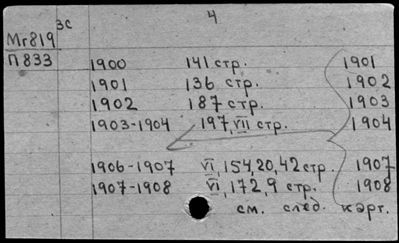 зс 4
Мг819
П833 1900 141 стр. 1901
1901 136 стр. 1902
1902 187 стр. 1903
1903-1904 197, VII стр. 1904
1906-1907 VI, 154, 20, 42 стр. 1907
1907-1908 VI, 172, 9 стр. 1908
см. след. карт.